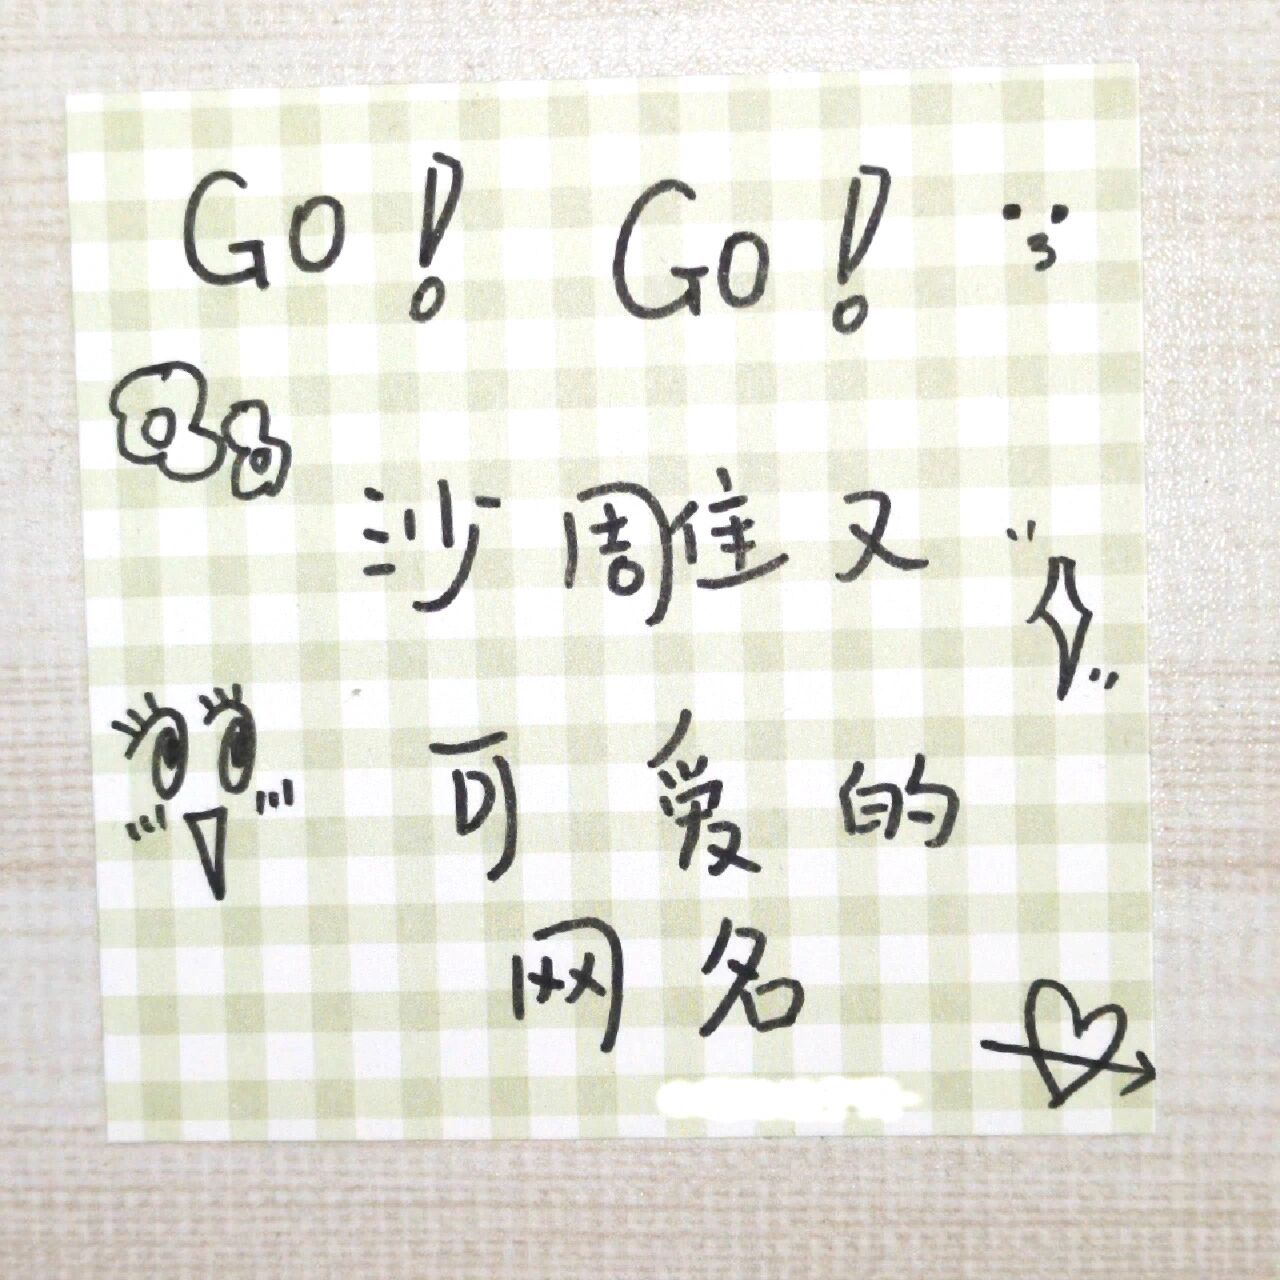 Go! Go!
沙雕又
可爱的
网名